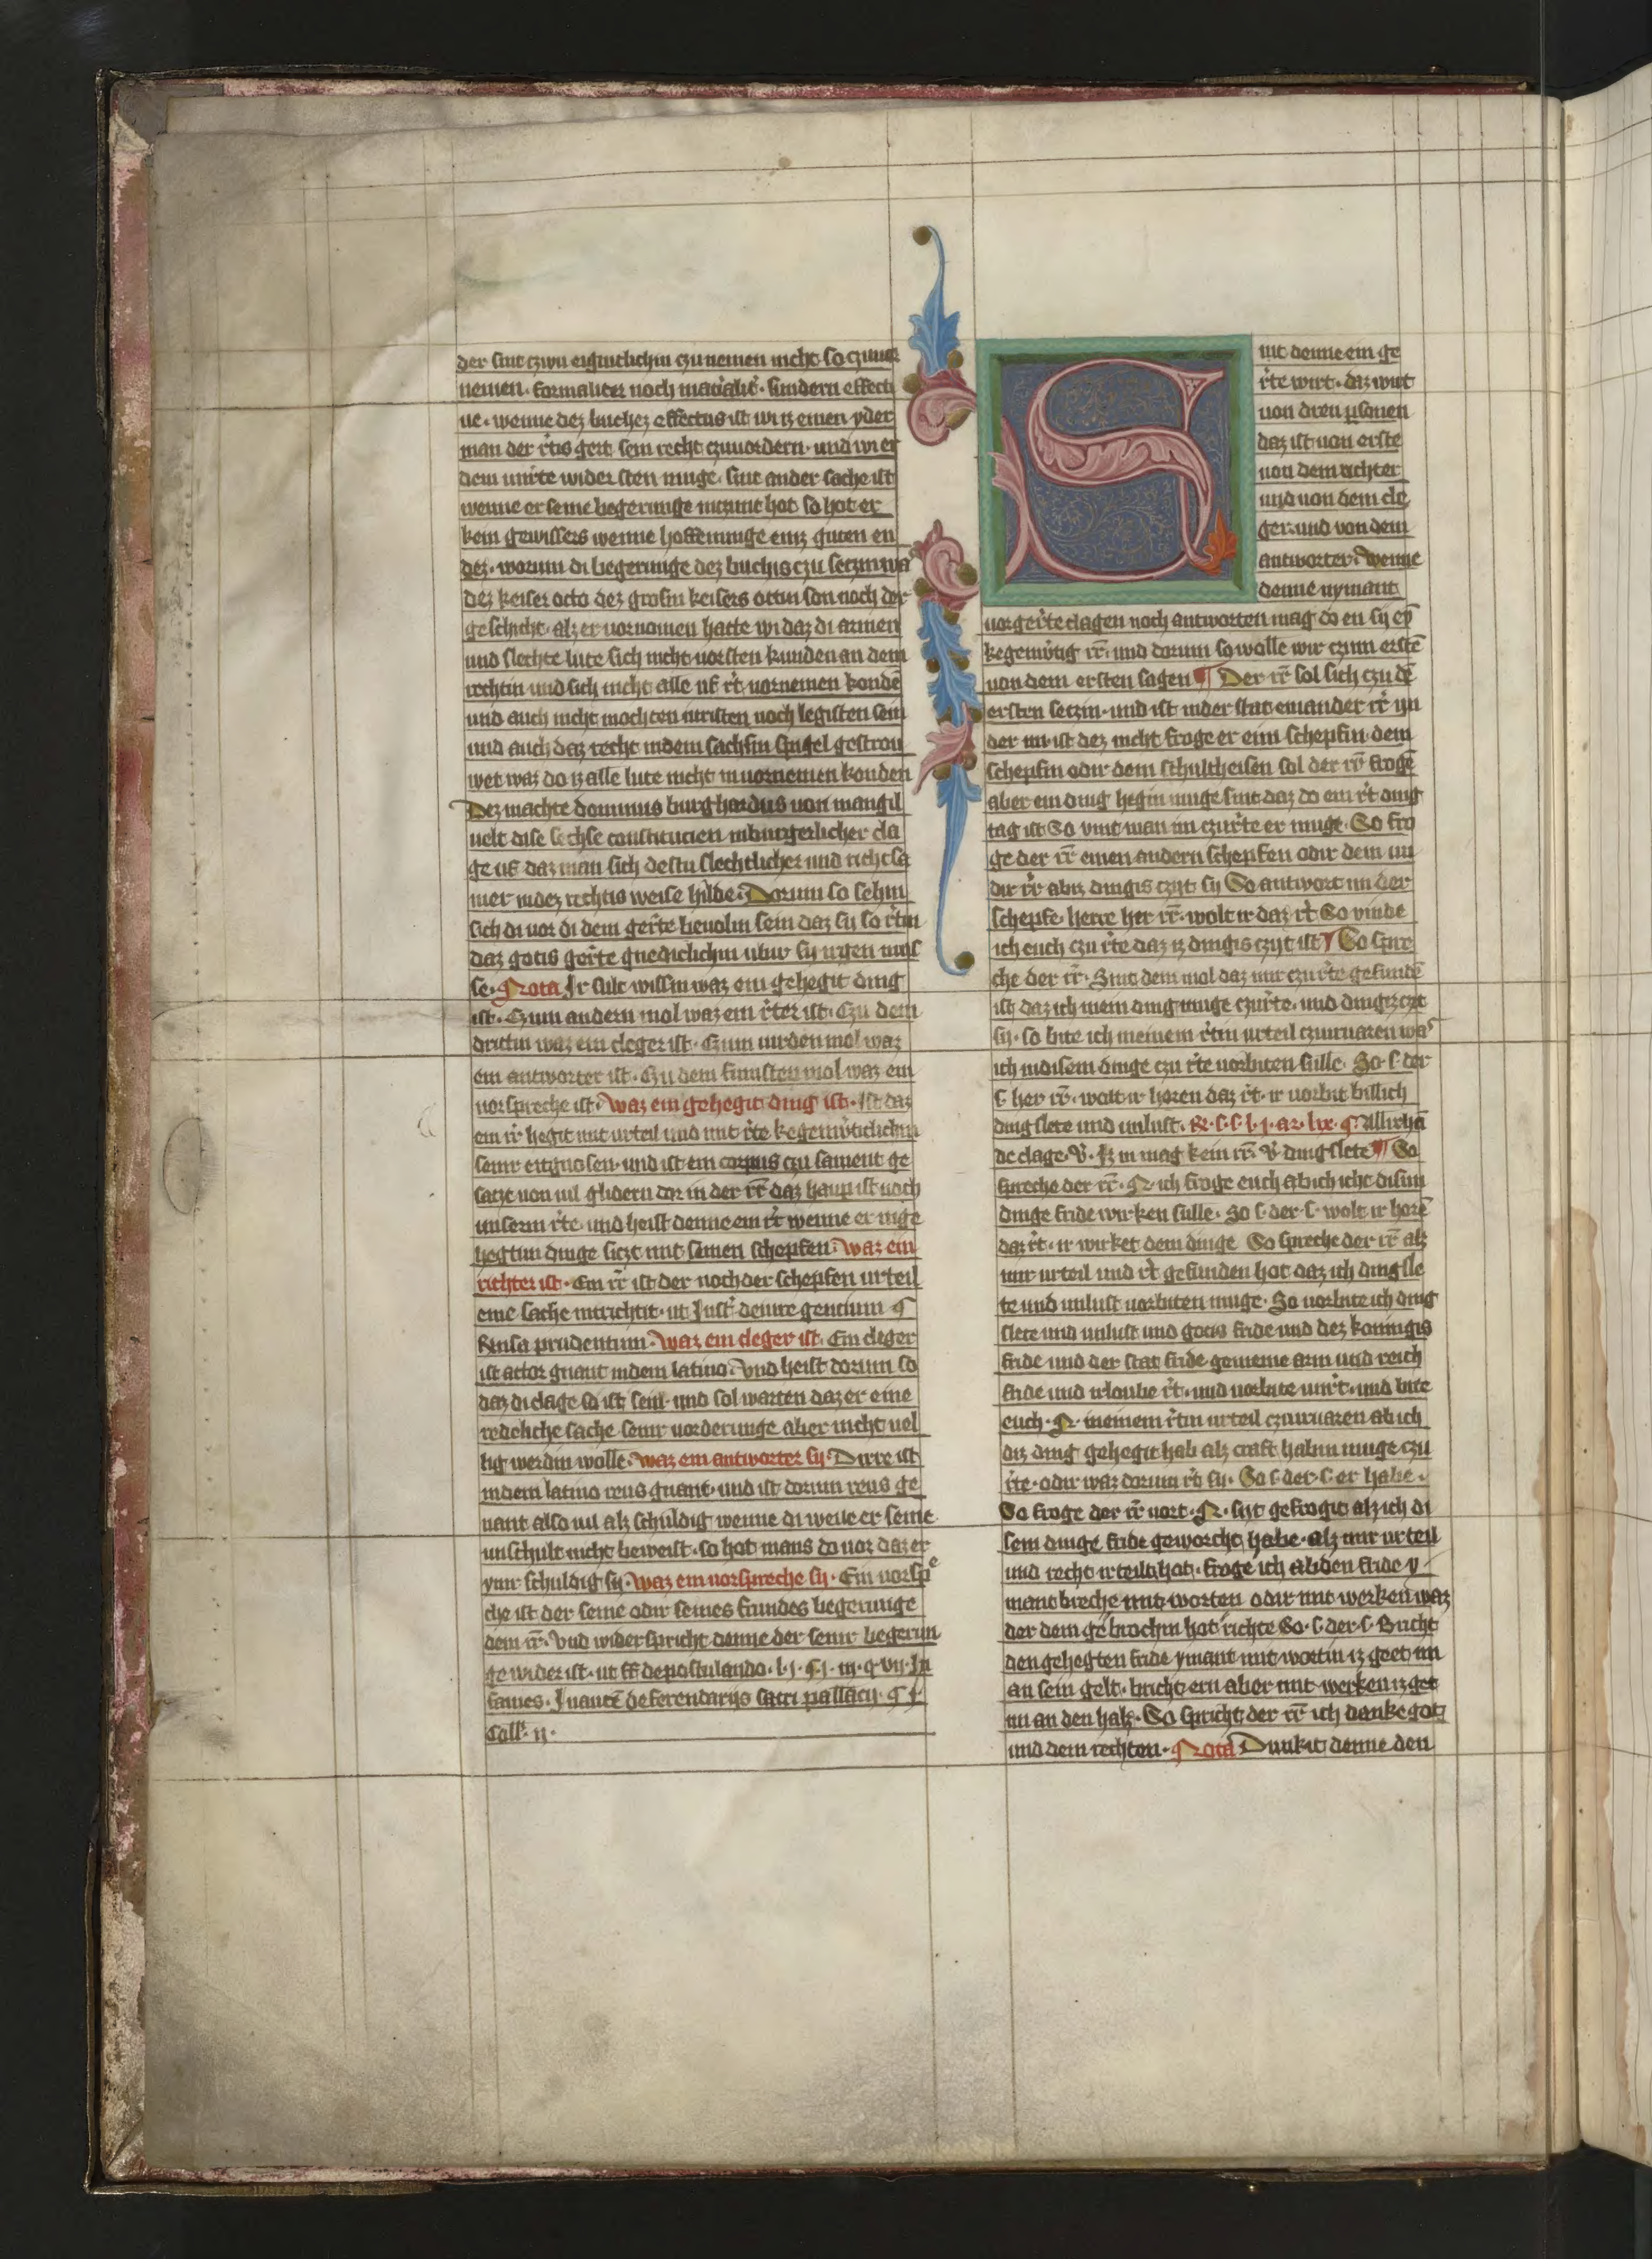 der sint czwu eigintlichin czu nemen nicht so czuuor
nemen · formaliter noch materialiter · sundern effecti
ue · wenne dez buchez effectus ist wi iz einen yder
man der r̄tis gert sein recht czuuordern · und wi er
dem unr̄te wider sten muge · sint ander sache ist
wenne er seine begerunge
kein gewissers wenne hoffenunge einz guten en
dez · worum di begerunge dez buchis czu seczin wa
dez keiser octo dez grosin keisers ottin son noch der
geschicht · alz er uornomen hatte wi daz di armen
und slechte lute sich nicht uorsten kunden an dem
rechtin und sich nicht alle uf r̄t uornemen kondē
und auch nicht mochten iuristen noch legisten sein
und auch daz recht in dem sachsin spigel gestrou
wet waz do iz alle lute nicht in uornemen konden
Dez machte dominus burghardus von mangil
uelt dise sechse constitucien in burgerlicher cla
ge uf daz man sich destu slechtlicher und richtsa
mer in dez rechtis weise hilde · Dorum so sehin
sich di uor di dem gerr̄te beuolin sein daz sy so r̄tin
daz gotis ger̄te gnediclichin ubir sy irgen mus
se · Nota Ir sult wissin waz ein gehegit ding
ist · Czum andern mol waz ein r̄ter ist · Czu dem
drittin waz ein cleger ist · Czum uirden mol waz
ein antworter ist · Czu dem funften mol waz ein
uorspreche ist · waz ein gehegit ding ist · Ist daz
ein r̄r hegit mit urteil und mit r̄te kegenw̄ticlichin
seinr eitgnosen · und ist ein corpus czu sament ge
satzt uon uil glidern dor in der r̄r daz haupt ist noch
unserm r̄te · und heist denne ein r̄r wenne er in ge
hegtim dinge siczt mit seinen schepfen · waz ein
richter ist · Ein r̄r ist der noch der schepfen urteil
eine sache intrichtit · ut Insti · de iure gencium ¶
Rensa prudentum · waz ein cleger ist · Ein cleger
ist actor gnant in dem latino · Vnd heist dorum so
daz di clage so ist sein · und sol warten daz er eine
redeliche sache seinr uorderunge aber nicht uel
lig werdin wolle · waz ein antworter sy · Dirre ist
in dem latino reus gnant · und ist dorum reus ge
nant also uil alz schuldig wenne di weile er seine
unschult nicht beweist · so hot mans do uor daz er
ymr schuldig sy · waz ein uorspreche sy · Ein uorspᵉ
che ist der seine odir seines frundes begerunge
dem r̄r · Vnd wider spricht denne der seinr begerun
ge wider ist · ut ff de postulando · l · j · ¶ j · in · q · vii · In
fames · de referendariis sacri pallacij · ¶ j ·
Coll · ij ·
int denne ein ge
r̄te wirt · daz wirt
uon dren psonen
daz ist uon erste
uon dem richter
und uon dem cle
ger · und von dem
antworter · Wenne
denne nymant
uorger̄te clagen noch antworten mag do en sy ey
kegenw̄tig r̄r · und dorum so wolle wir czum erstē
uon dem ersten sagen ¶ Der r̄r sol sich czu dē
ersten seczin · und ist in der stat ein ander r̄r yn
der im ist dez nicht froge er ein schepfin · dem
schepfin odir dem schultheisen sol der r̄r frogē
aber ein ding hegin muge sint daz do ein r̄t ding
tag ist So vint man im czu r̄te er muge · So fro
ge der r̄r einen andern schepfen odir dem un
dir r̄r abiz dingis czyt sy So antwort im der
schepfe · herre her r̄r · wolt ir daz r̄t So vinde
ich euch czu r̄te daz iz dingis czyt ist ¶ So spre
che der r̄r · Sint dem mol daz mir czu r̄te gefundē
ist daz ich mein ding muge czu r̄te · und dingiz czyt
sy · so bite ich meinem r̄tin urteil czuiruaren waˢ
ich in disem dinge czu r̄te uorbiten sulle · So · s · der
s · her r̄r · wolt ir horen daz r̄t · ir uorbit billich
dingslete und unlust · R · s · s · l · j · ar · lix · ¶ Allirhā
de clage · V̄ · Iz in mag kein r̄r · V̄ · dingslete ¶ So
spreche der r̄r · N · ich froge euch ab ich icht disim
dinge fride wirken sulle · So · s · der · s · wolt ir horē
daz r̄t · ir wirket dem dinge So spreche der r̄r alz
mir urteil und r̄t gefunden hot daz ich dingsle
te und unlust uorbiten muge · So uorbite ich ding
slete und unlust und gotis fride und dez koningis
fride und der stat fride gemeine arm und reich
fride und irloube r̄t · und uorbite unr̄t · und bite
euch · N · meinem r̄tin urteil czuiruaren ab ich
diz ding gehegit hab alz craft habin muge czu
r̄te · odir waz dorum r̄t sy · So · s · der · s · er habe ·
So froge der r̄r uort · N · syt gefrogit alz ich di
sem dinge fride geworcht habe · alz mir urteil
und recht irteilt hot · froge ich ab den fride y
mant breche mit worten odir mit werken waz
der dem gebrochin hot richte So · s · der · s · Bricht
den gehegten fride ymant mit wortin iz geet im
an sein gelt · bricht ern aber mit werken iz get
im an den halz · So spricht der r̄r ich danke got
und dem rechten · Nota Dunkit denne den